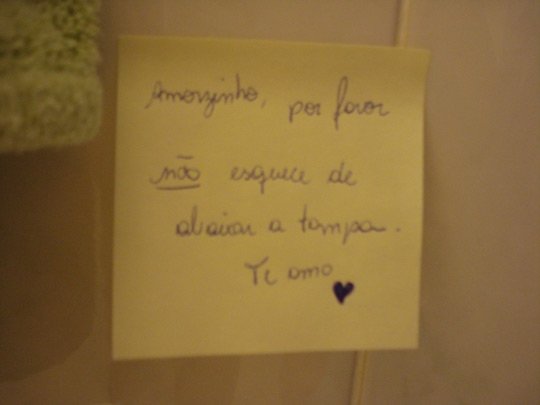 Amorzinho, por favor
não esquece de
abaixar a tampa.
Te amo